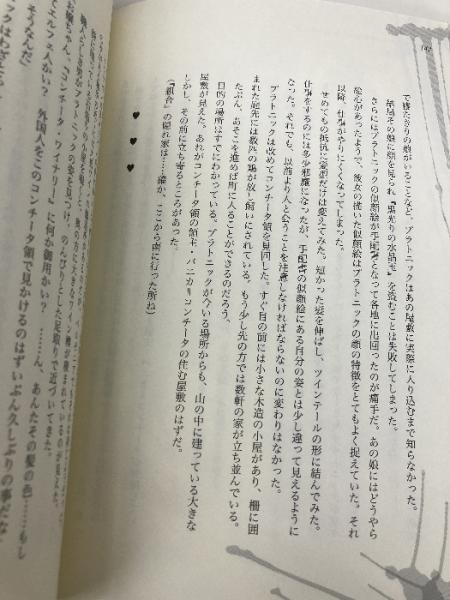 で寝たきりの娘がいることなど、プラトニックはあの屋敷に実際に入り込むまで知らなかった。
結局その娘に顔を見られ『黒光りの水晶玉』を盗むことは失敗してしまった。
さらにはプラトニックの似顔絵が手配書となって各地に出回ったのが痛手だ。あの娘にはどうやら
絵心があったようで、彼女の描いた似顔絵はプラトニックの顔の特徴をとてもよく捉えていた。それ
以降、仕事がやりにくくなってしまった。
せめてもの抵抗に髪型だけは変えてみた。短かった髪を伸ばし、ツインテールの形に結んでみた。
仕事をするのには多少邪魔になったが、手配書の似顔絵にある自分の姿とは少し違って見えるように
なった。それでも、以前より人と会うことを注意しなければならないのに変わりはなかった。
プラトニックは改めてコンチータ領を見回した。すぐ目の前には小さな木造の小屋があり、柵に囲
まれた庭先には数匹の鶏が放し飼いにされている。もう少し先の方では数軒の家が立ち並んでいる。
たぶん、あそこを進めば町に入ることができるのだろう。
目的の場所はすでにわかっている。プラトニックが今いる場所からも、山の中に建っている大きな
屋敷が見えた。あれがコンチータ領の領主・バニカ＝コンチータの住む屋敷のはずだ。
しかし、その前に立ち寄るところがあった。
(『組合』の隠れ家は……確か、ここから南に行った所ね)
♥ ♥ ♥
お嬢ちゃん、『コンチータ・ワイナリー』に何か御用かい？ ……ん、あんたその髪の色……もし
てエルフェ人かい？ 外国人をこのコンチータ領で見かけるのはずいぶん久しぶりの事だな
そうなんだ